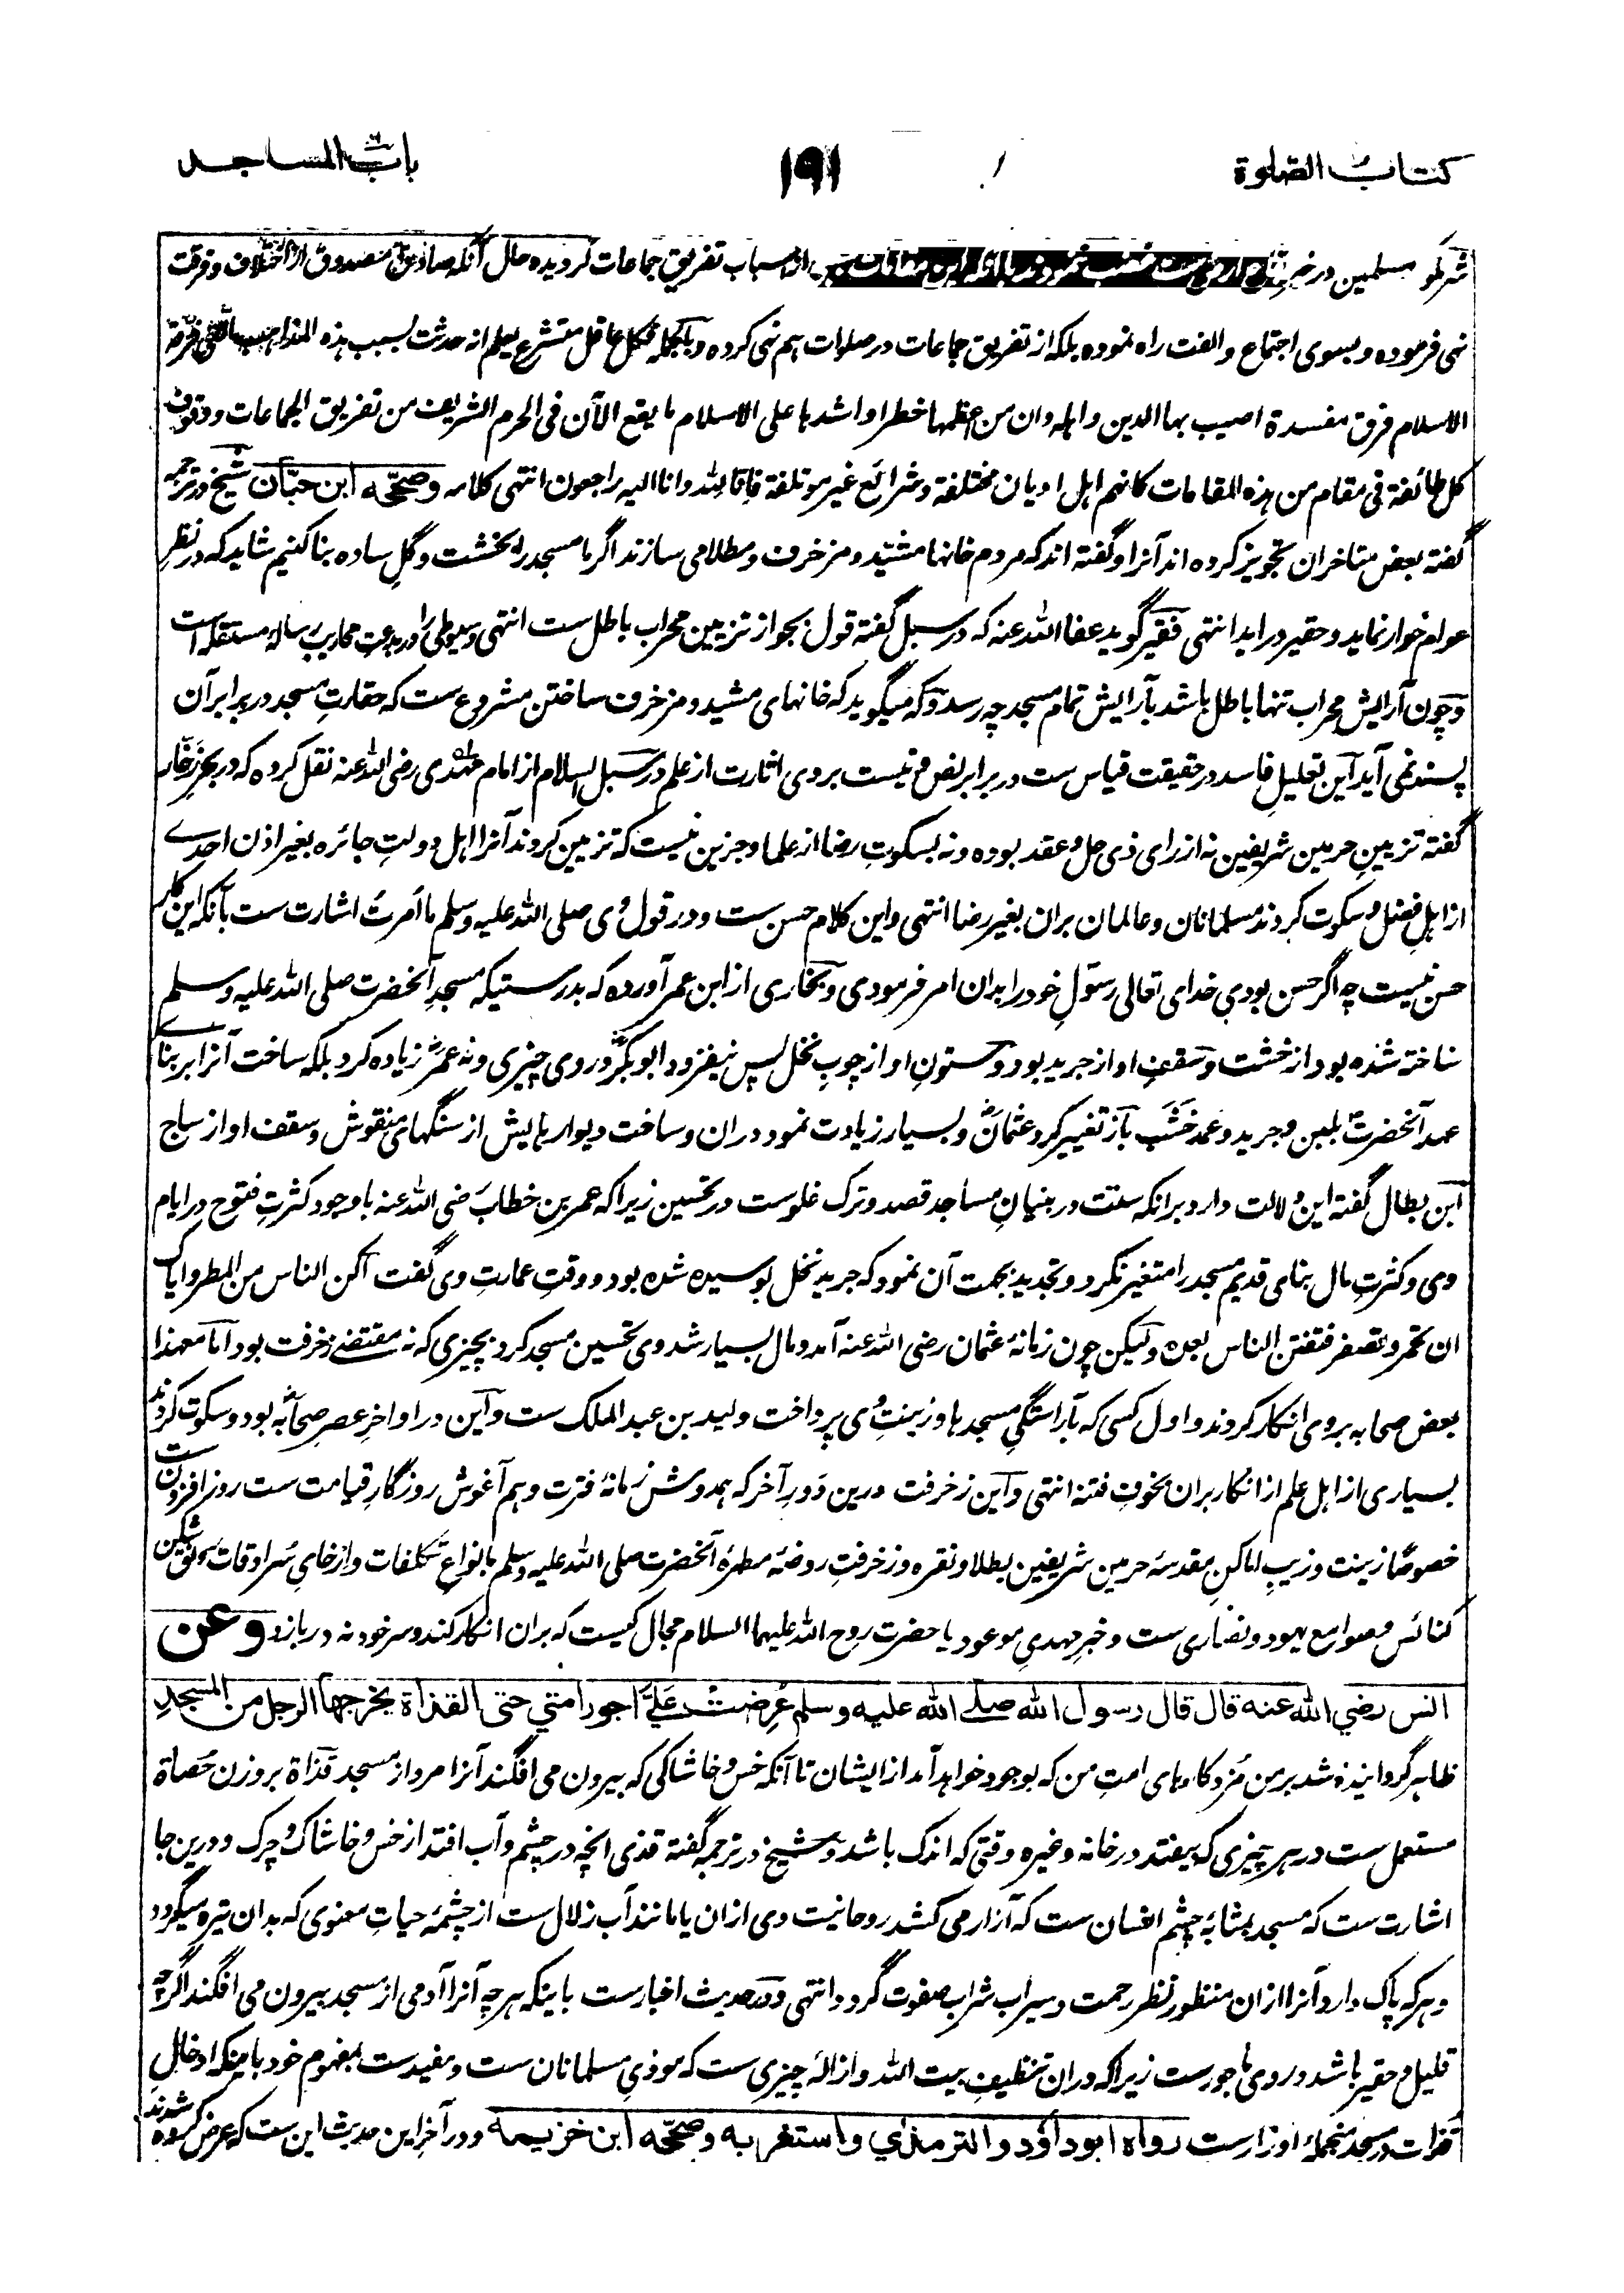 كتاب الصلوة
١٩١
باب المساجد
مسلمين در خير اسباب تفريق جماعات گرديده حال آنكه صادق مصدوق از اختلاف و فرقت
نهی فرموده و بسوی اجتماع و الفت راه نموده بلكه از تفريق جماعات در صلوات هم نهی كرده و بالجمله فكل عاقل متشرع يعلم انه حدثت بسبب هذه المذاهب فرقة
الاسلام فرق مفسدة اصيب بها الدين و اهله و ان من اعظمها خطرا و اشدها على الاسلام ما يقع الآن فى الحرم الشريف من تفريق الجماعات و وقوف
كل طائفة فى مقام من هذه المقامات كانهم اهل اديان مختلفة و شرائع غير مؤتلفة فانا لله و انا اليه راجعون انتهى كلامه وصحّحه ابن حبّان شيخ در ترجمه
گفته بعض متاخران تجويز كرده اند آنرا و گفته اند كه مردم خانها مشيّد و مزخرف و مطلا می سازند اگر ما مسجد را بخشت و گلِ ساده بنا كنيم شايد كه در نظرِ
عوام خوار نمايد و حقير درايد انتهى فقير گويد عفا الله عنه كه در سبل گفته قول بجواز تزيين محراب باطل ست انتهى و سيوطی را در بدعتِ محاريب رسالهٔ مستقله است
و چون آرايش محراب تنها باطل باشد بآرايش تمام مسجد چه رسد و آنكه ميگويد كه خانهای مشيد و مزخرف ساختن مشروع ست كه حقارتِ مسجد در برابر آن
پسند نمی آيد اين تعليلِ فاسد در حقيقت قياس ست در برابر نص و نيست بر وی اثارت از علم در سبل السلام از امام مهدی رضی الله عنه نقل كرده كه در بحرِ زخّار
گفته تزيينِ حرمين شريفين نه از رای ذی حل و عقد بوده و نه بسكوتِ رضا از علما و جزين نيست كه تزيين كردند آنرا اهل دولتِ جائره بغير اذن احدے
از اهلِ فضل و سكوت كردند مسلمانان و عالمان بران بغير رضا انتهى و اين كلام حسن ست و در قول وی صلی الله عليه و سلم ما اُمرتُ اشارت ست بآنكه اين كار
حسن نيست چه اگر حسن بودی خدای تعالی رسولِ خود را بدان امر فرمودی و بخاری از ابن عمر آورده كه بدرستيكه مسجدِ آنحضرت صلی الله عليه و سلم
ساخته شده بود از خشت و سقفِ او از جريد بود و ستونِ او از چوبِ نخل پس نيفزود ابو بكرؓ در وی چيزی و نه عمرؓ زياده كرد بلكه ساخت آنرا بر بنائے
عهد آنحضرتؐ بلبن و جريد و عمد خَشَب باز تغيير كرد عثمانؓ و بسيار زيادت نمود دران و ساخت ديوارهايش از سنگهای منقوش و سقف او از ساج
ابن بطال گفته اين دلالت دارد برانكه سنت در بنيانِ مساجد قصد و ترك غلوست در تحسين زيرا كه عمر بن خطاب رضی الله عنه با وجود كثرتِ فتوح در ايام
وی و كثرتِ مال بنای قديم مسجد را متغير نكرد و تجديد بجهت آن نمود كه جريد نخل بوسيده شده بود و وقتِ عمارتِ وی گفت اكن الناس من المطر و اياك
ان تحمر و تصفر فتفتن الناس بعده و ليكن چون زمانهٔ عثمان رضی الله عنه آمد و مال بسيار شد وی تحسين مسجد كرد بچيزی كه نه مقتضے زخرفت بود اما معهذا
بعض صحابه بر وی انكار كردند و اول كسی كه بآراستگیِ مسجدها و زينتِ وی پرداخت وليد بن عبد الملك ست و اين در اواخرِ عصرِ صحابه بود و سكوت كردند
بسياری از اهل علم از انكار بران بخوفِ فتنه انتهى و اين زخرفت درين دَورِ آخر كه همدوش زمانهٔ فترت و هم آغوش روزگارِ قيامت ست روز افزون ست
خصوصًا زينت و زيبِ اماكنِ مقدسهٔ حرمين شريفين بطلا و نقره و زخرفتِ روضهٔ مطهرهٔ آنحضرت صلی الله عليه و سلم بانواعِ تكلفات و ارخای سُرادقات
كنائس و صوامعِ يهود و نصاری ست و خبرِ مهدیِ موعود يا حضرت روح الله عليهما السلام مجال كيست كه بران انكار كند و سر خود نه دربازد وعن
انس رضي الله عنه قال قال رسول الله صلے الله عليه وسلم عُرِضت عَلَيَّ اجور امتي حتى القذاة يخرجها الرجل من المسجدِ
ظاهر گردانيده شد بر من مُزدِ كارهای امتِ من كه بوجود خواهد آمد از ايشان تا آنكه خس و خاشاكی كه بيرون می افگند آنرا مرد از مسجد قذاة بر وزن حَصاة
مستعمل ست در هر چيزی كه بيفتد در خانه و غيره وقتی كه اندك باشد و شيخ در ترجمه گفته قذی انچه در چشم و آب افتد از خس و خاشاك و چرك و درين جا
اشارت ست كه مسجد بمثابهٔ چشم انسان ست كه آزار می كشد روحانيت وی ازان يا مانند آب زلال ست از چشمهٔ حياتِ معنوی كه بدان تيره ميگردد
و هركه پاك دارد آنرا ازان منظورِ نظرِ رحمت و سيراب شرابِ صفوت گردد انتهى و در حديث اخبارست باينكه هرچه آنرا آدمی از مسجد بيرون می افگند اگرچه
قليل و حقير باشد در وی ماجورست زيرا كه دران تنظيفِ بيت الله و ازالهٔ چيزی ست كه موذیِ مسلمانان ست و مفيدست بمفهوم خود باينكه ادخالِ
قذات در مسجد منجملهٔ اوزارست رواه ابوداؤد والترمذي واستغربه وصحّحه ابن خزيمه و در آخرِ اين حديث اين ست كه عرض كرده شدند